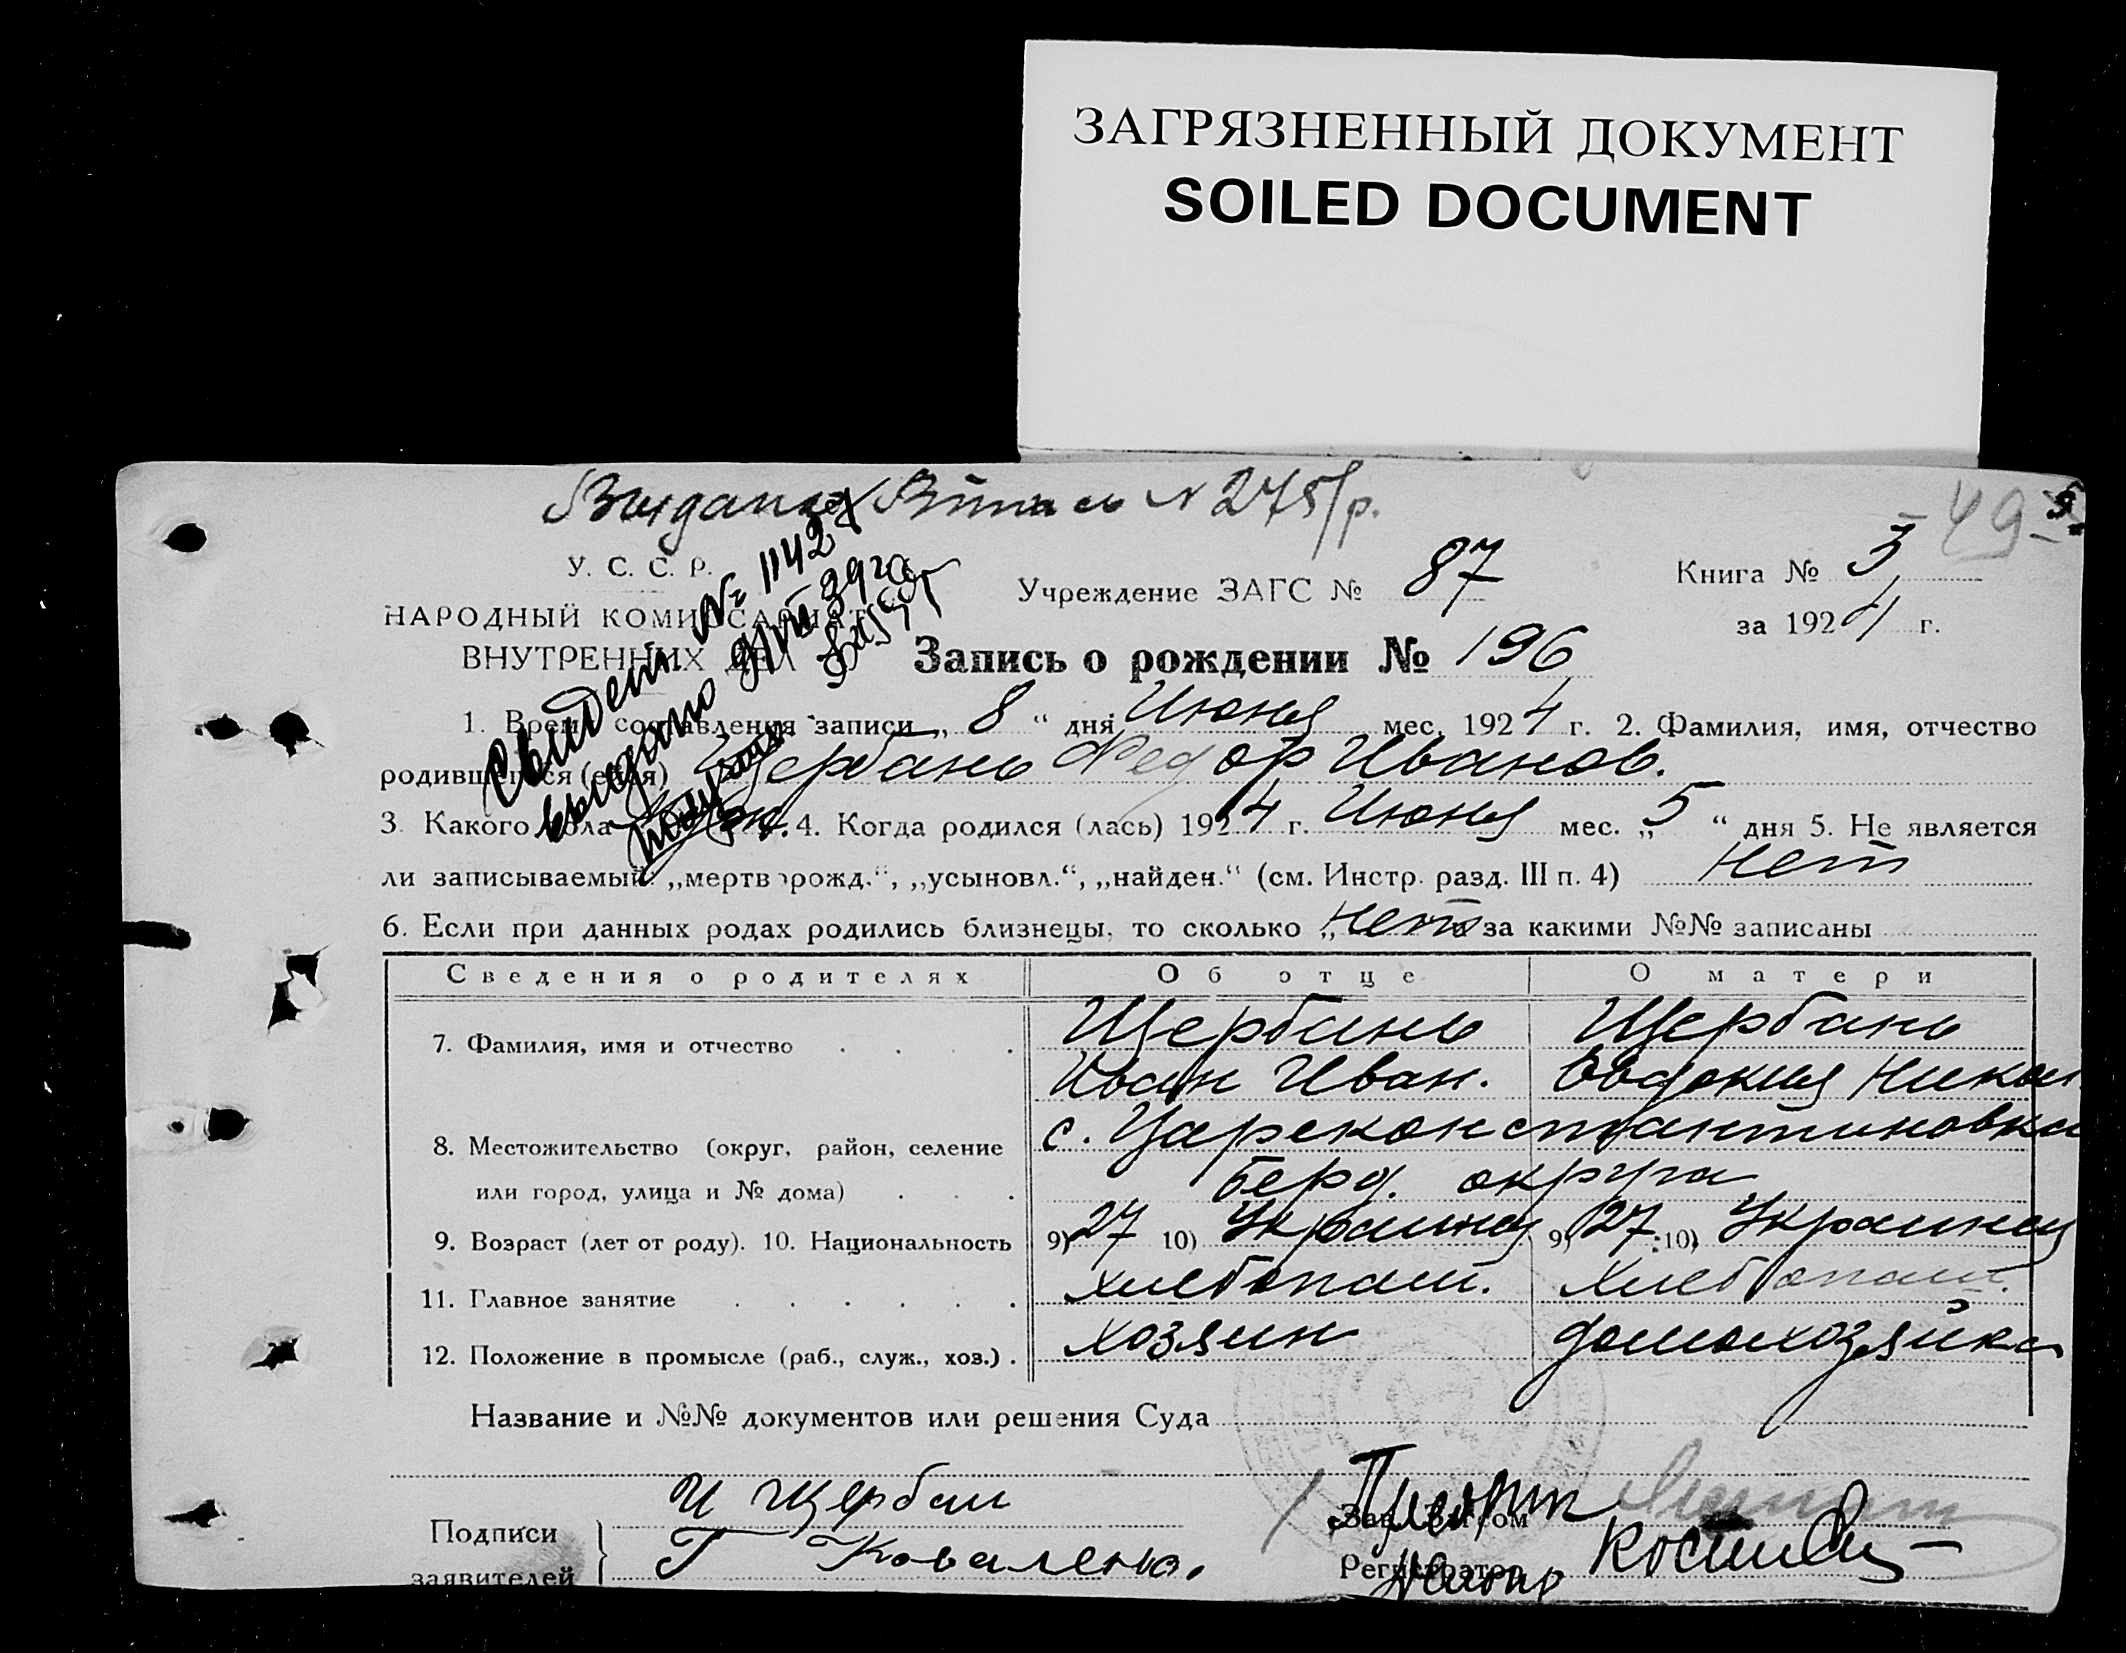 ЗАГРЯЗНЕННЫЙ ДОКУМЕНТ
SOILED DOCUMENT
N 275/р.
49
У. С. С. Р.
НАРОДНЫЙ КОМИССАРИАТ
ВНУТРЕННИХ ДЕЛ
Свидет. № 1142
выдано
Учреждение ЗАГС № 87
Книга № 3
за 1924 г.
Запись о рождении № 196
1. Время составления записи „ 8 “ дня Июня мес. 1924 г. 2. Фамилия, имя, отчество
родившегося (ейся) Щербань Федор Иванов.
3. Какого пола 4. Когда родился (лась) 1924 г. Июня мес. „ 5 “ дня 5. Не является
ли записываемый: „мертворожд.“, „усыновл.“, „найден.“ (см. Инстр. разд. III п. 4) Нет
6. Если при данных родах родились близнецы, то сколько „ Нет за какими №№ записаны
Сведения о родителях Об отце О матери
7. Фамилия, имя и отчество Щербань Щербань
Иван Иван. Евдокия Никол
8. Местожительство (округ, район, селение с. Царсконстантиновка
или город, улица и № дома) Берд. округа
9. Возраст (лет от роду). 10. Национальность 9) 27 10) Украинец 9) 27 10) Украинец
11. Главное занятие хлебопаш. хлебопаш.
12. Положение в промысле (раб., служ., хоз.) хозяин домохозяйка
Название и №№ документов или решения Суда
Подписи
заявителей
И Щербан
Г Коваленко.
Зав. Загсом
Регистратор